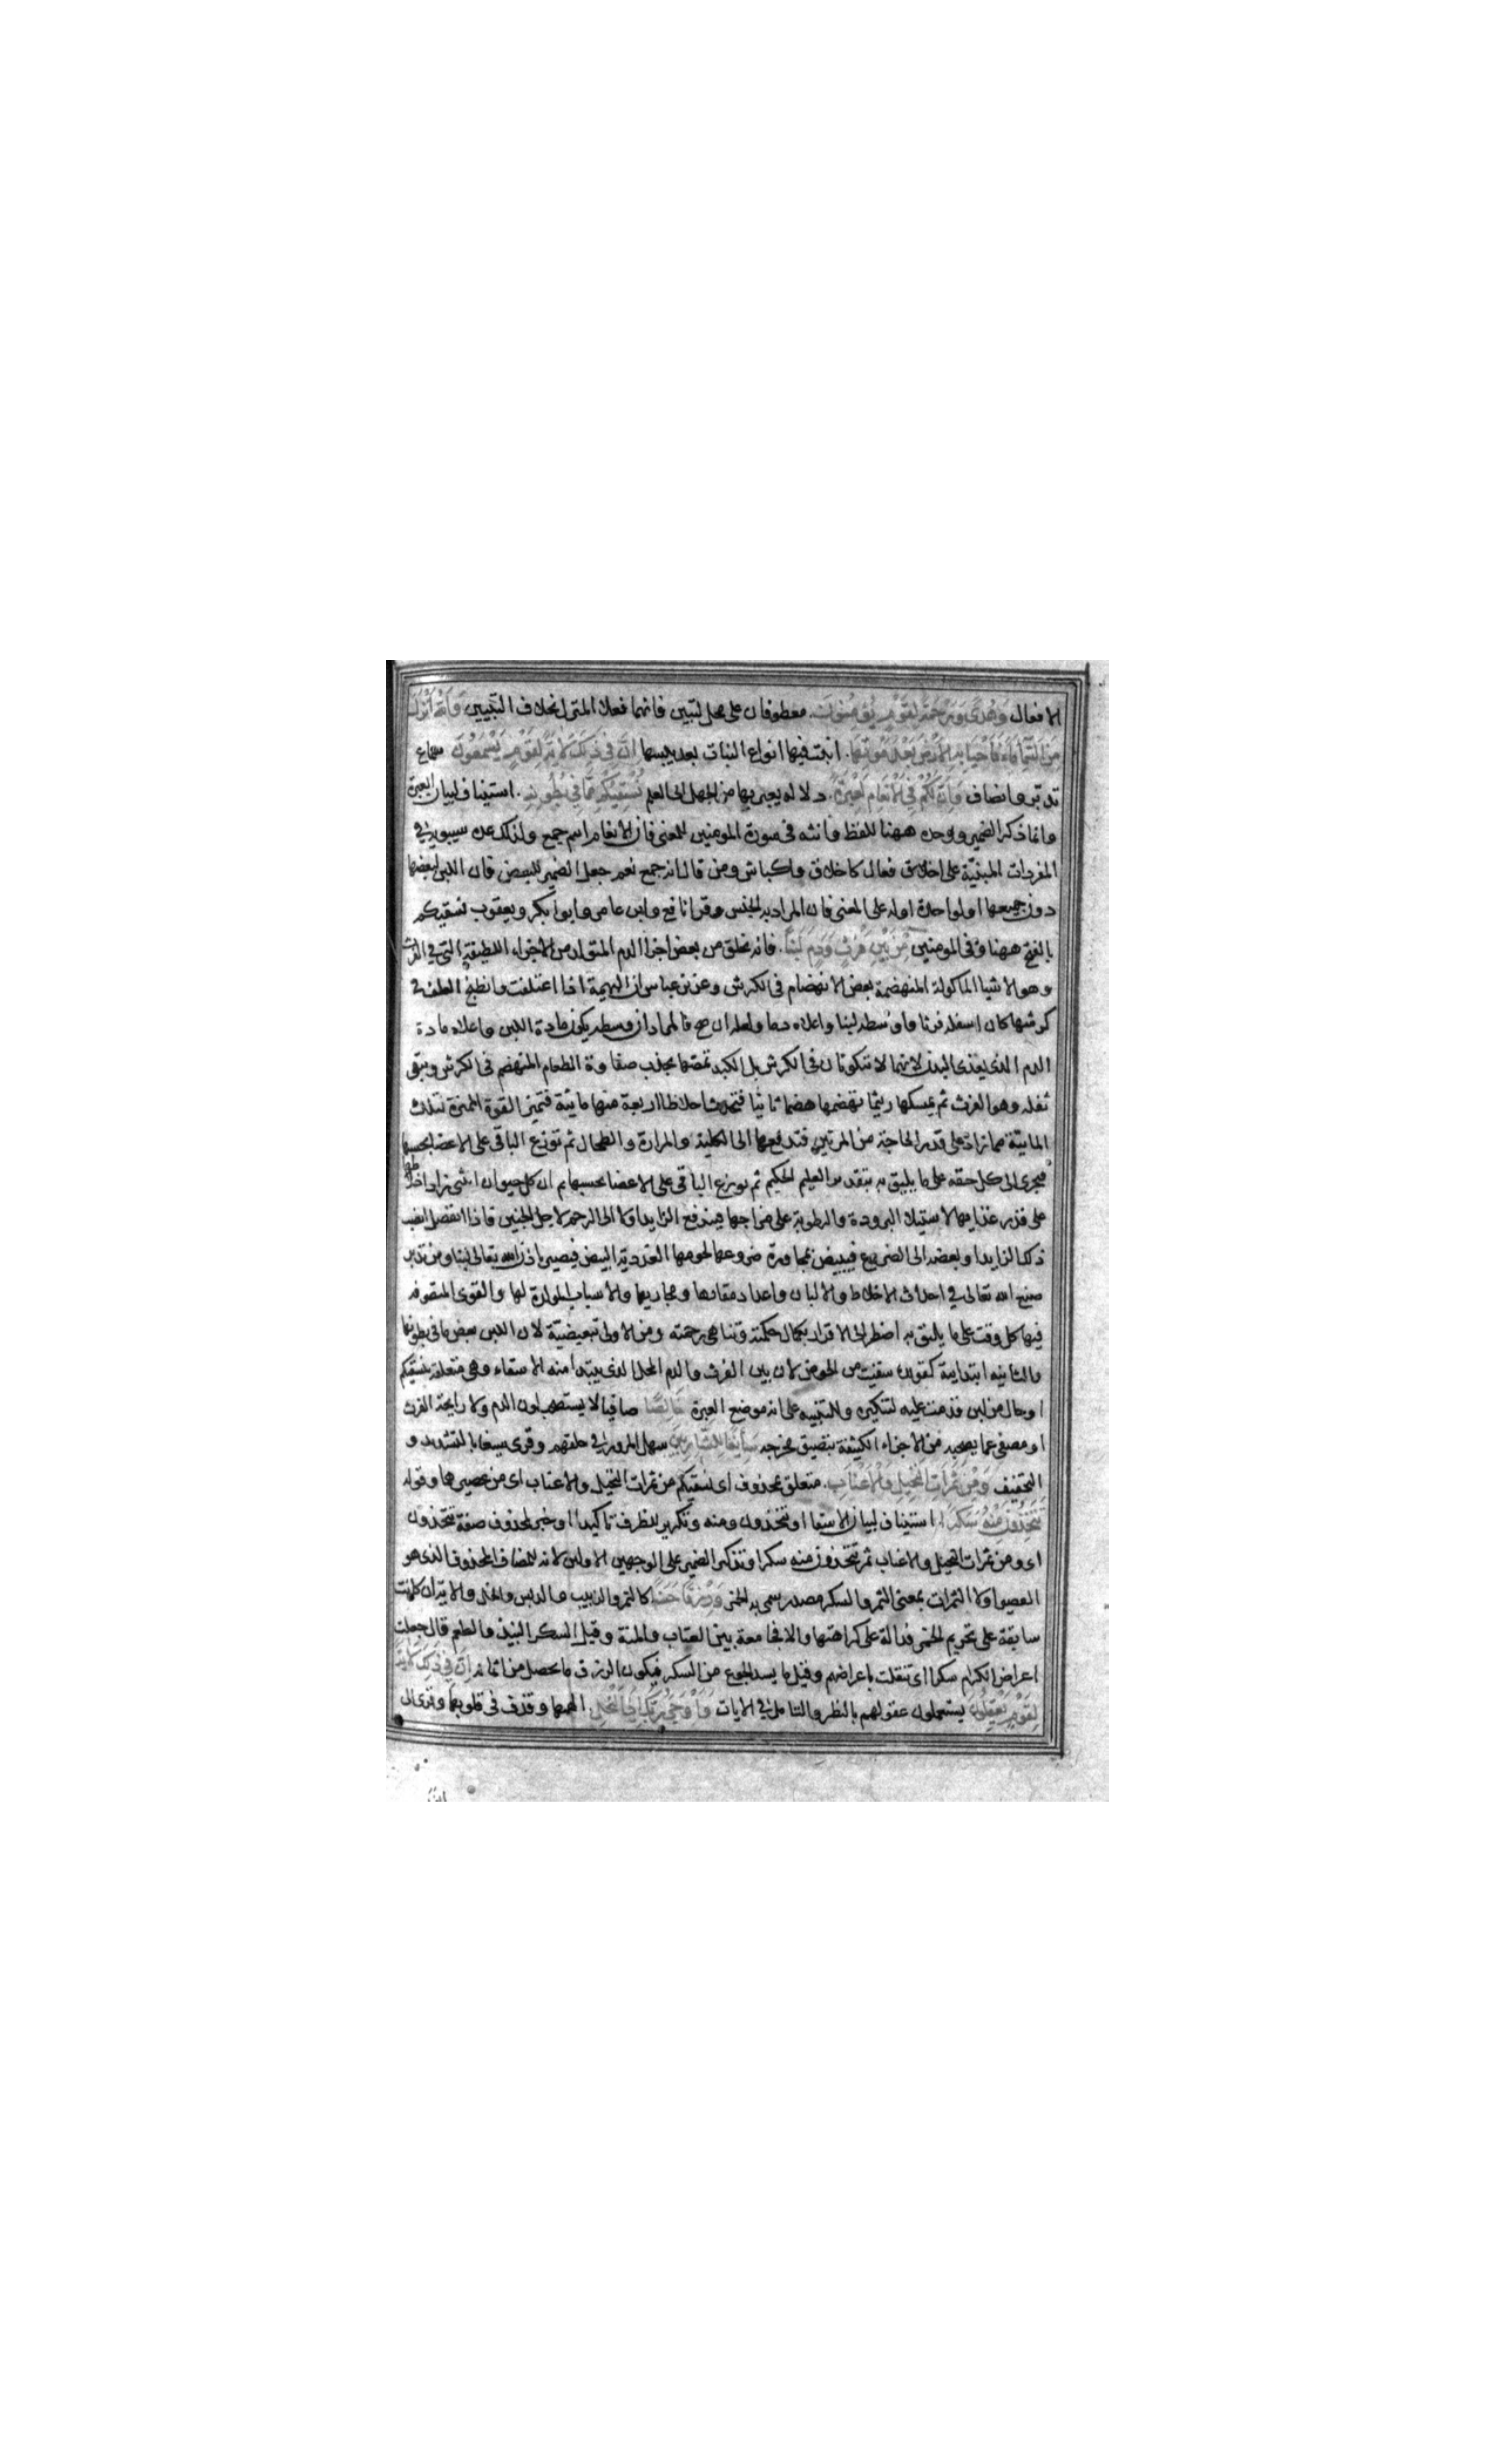 الافعال وهدى ورحمة لقوم يؤمنون. معطوفان على محل لتبين فانهما فعلا المنزل بخلاف التبيين والله انزل
من السماء ماء فاحيا به الارض بعد موتها. انبت فيها انواع النبات بعد يبسها ان فى ذلك لاية لقوم يسمعون سماع
تدبر وانصاف وان لكم فى الانعام لعبرة. دلالة يعبر بها من الجهل الى العلم نسقيكم مما فى بطونه. استيناف لبيان العبرة
وانما ذكر الضمير ووحده ههنا للفظ وانثه فى سورة المومنين للمعنى فان الانعام اسم جمع ولذلك عده سيبويه فى
المفردات المبنية على افعال كاخلاق واكباش ومن قال انه جمع نعم جعل الضمير للبعض فان اللبن لبعضها
دون جميعها او لواحدة او له على المعنى فان المراد به الجنس وقرا نافع وابن عامر وابوا بكر ويعقوب نسقيكم
بالفتح ههنا وفى المومنين من بين فرث ودم لبنا. فانه يخلق من بعض اجزا الدم المتولد من الاجزاء اللطيفة التى فى الفرث
وهو الاشيا الماكولة المنهضمة بعض الانهضام فى الكرش وعن بن عباس ان البهيمة اذا اعتلفت وانطبخ العلف فى
كرشها كان اسفله فرثا واوسطه لبنا واعلاه دما ولعله ان صح فالمراد ان وسطه يكون مادة اللبن واعلاه مادة
الدم الذى يغذى البدن لانهما لا تتكونان فى الكرش بل الكبد تمصها بجذب صفاوة الطعام المنهضم فى الكرش ويبقى
ثفله وهو الفرث ثم يمسكها ريثما تهضمها هضما ثانيا فتحدث اخلاطا اربعة منها مائية فتميز القوة المميزة تلك
المائية مما زاد على قدر الحاجة من المرتين فتدفعها الى الكلية والمرارة والطحال ثم توزع الباقى على الاعضا بحسبها
فيجرى الى كل حقه على ما يليق به بتقدير العليم الحكيم ثم يوزع الباقى على الاعضا بحسبها ثم ان كل حيوان انثى زاد اخلاطها
على قدر غذايها لاستيلا البرودة والرطوبة على مزاجها فيندفع الزايد اولا الى الرحم لاجل الجنين فاذا انفصل انصب
ذلك الزايد او بعضه الى الضروع فيبيض بمجاورة ضروعها لحومها الغددية البيض فيصير باذن الله تعالى لبنا ومن تدبر
صنع الله تعالى فى احداث الاخلاط والالبان واعداد مقارها ومجاريها والاسباب المولدة لها والقوى المتصرفه
فيها كل وقت على ما يليق به اضطر الى الاقرار بكمال حكمته وتناهى رحمته ومن الاولى تبعيضية لان اللبن بعض ما فى بطونها
والثانيه ابتدايية كقولك سقيت من الحوض لان بين الفرث والدم المحل الذى يبتدا منه الاسقاء وهى متعلقة بنسقيكم
او حال من لبن قدمت عليه لتنكيره وللتنبيه على انه موضع العبرة خالصا صافيا لا يستصحب لون الدم ولا رايحة الفرث
او مصفى عما يصحبه من الاجزاء الكثيفة بتضييق مخرجه سايغا للشاربين سهل المرور فى حلقهم وقرى سيغا بالتشديد و
التخفيف ومن ثمرات النخيل والاعناب. متعلق بمحذوف اى نسقيكم من ثمرات النخيل والاعناب اى من عصيرهما وقوله
تتخذون منه سكرا. استيناف لبيان الاسقا او تتخذون ومنه وتكرير للظرف تاكيدا او خبر لمحذوف صفة تتخذون
اى ومن ثمرات النخيل والاعناب ثمر تتخذون منه سكرا وتذكير الضمير على الوجهين الاولين لانه للمضاف المحذوف الذى هو
العصير او لان الثمرات بمعنى الثمر والسكر مصدر سمى به الخمر ورزقا حسنا كالتمر والزبيب والدبس والخل والاية ان كانت
سابقة على تحريم الخمر فدالة على كراهتها والا فجامعة بين العتاب والمنة وقيل السكر النبيذ والطعم قال جعلت
اعراض الكرام سكرا اى تنقلت باعراضهم وقيل ما يسد الجوع من السكر فيكون الرزق ما يحصل من اثمانه ان فى ذلك لاية
لقوم يعقلون يستعملون عقولهم بالنظر والتامل فى الايات واوحى ربك الى النحل. الهمها وقذف فى قلوبها وقرى الى